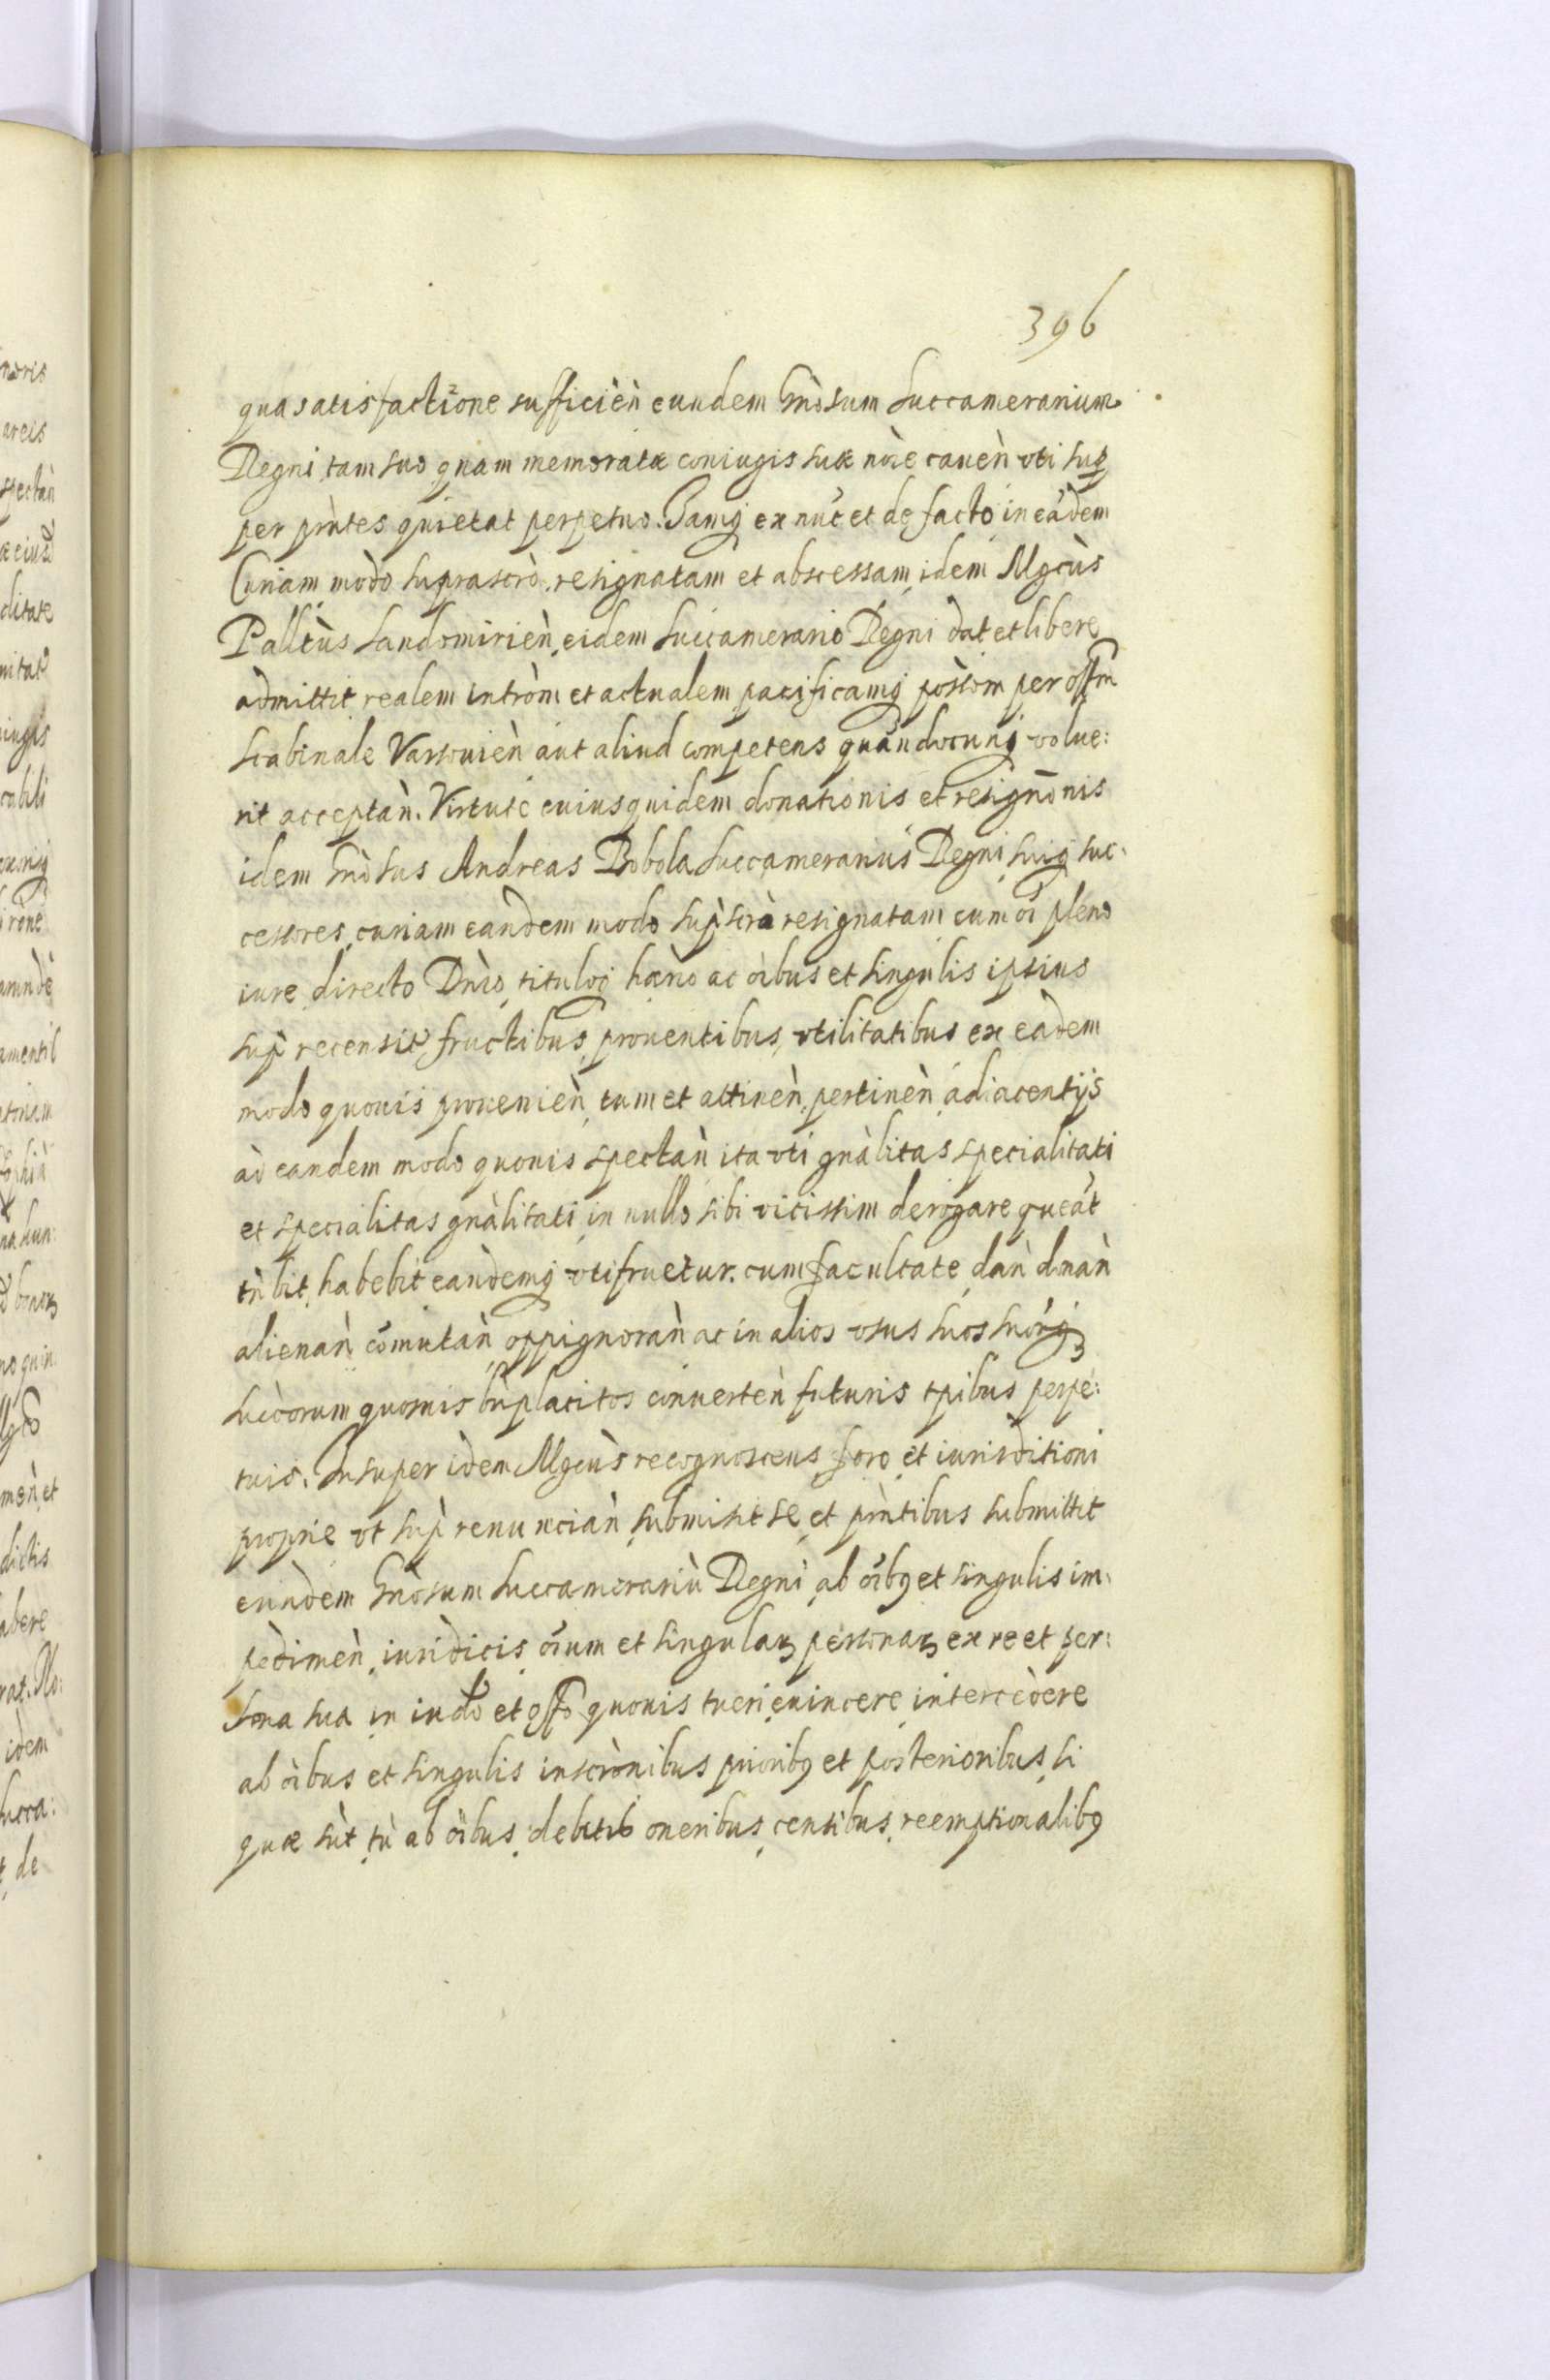 396
qua satisfactione sufficièn eundem Gnòsum Succamerarium
Regni tam suo quam memoratæ coniugis suæ nòie cauèn vti sup
per pntes quietat perpetuo. Iamq ex nuc et de facto in eadem
Curiam modo suprascrò. resignatam et abscessam idem Mgcùs
Pallùs Sandomirièn eidem Succamerario Regni dat et libere
admittit realem intròm et actualem pacificamq pòssom per offm
Scabinale Varsouièn aut aliud competens quandocunq volue:
rit acceptàn. Virtute cuiusquidem donationis et resignonis
idem Gnòsus Andreas Bobola Succamerarius Regni suiq suc:
cessores curiam eandem modo supscrà resignatam cum oi pleno
iure directo Dnio tituloq hærio ac oibus et singulis ipsius
sup recensit fructibus prouentibus vtilitatibus ex eadem
modo quouis prouenièn tum et attinèn pertinèn adiacentijs
ad eandem modo quouis spectàn ita vti gnàlitas specialitati
et specialitas gnàlitati in nullo sibi vicissim derogare queat
tnbit habebit eandemq vtifruetur. cum facultate dàn dnàn
alienàn comutàn oppignoràn ac in alios vsus suos suorq
succorum quouis bnplacitos conuertèn futuris tpibus perpe:
tuis. Insuper idem Mgcùs recognoscens foro et iurisditioni
proprie vt sup renunciàn submisit se et pntibus submittit
eundem Gnòsum Succamerariu Regni ab oibq et singulis im:
pedimèn iuridicis oium et singularz personarz ex re et per:
sona sua in iudo et offo quouis tueri euincere intercedere
ab oibus et singulis inscronibus priorib9 et posterioribus si
quæ sùt tù ab oibus debitis oneribus censibus reemptionalib9